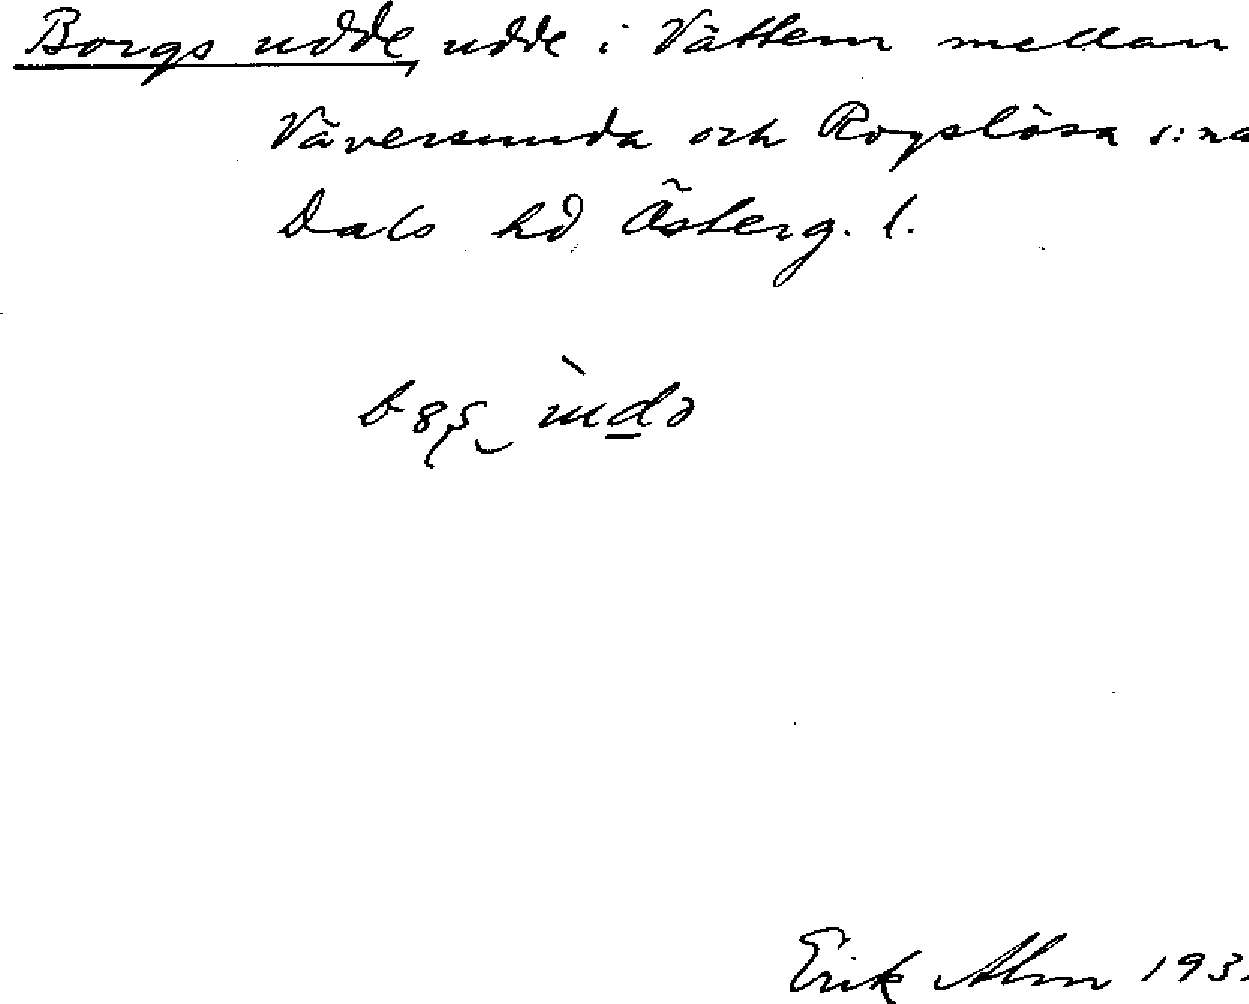 Borgs udde, udde i Vättern mellan
Väversunda och Rogslösa s:na
Dals hd Österg. l.
Erik Alm 193